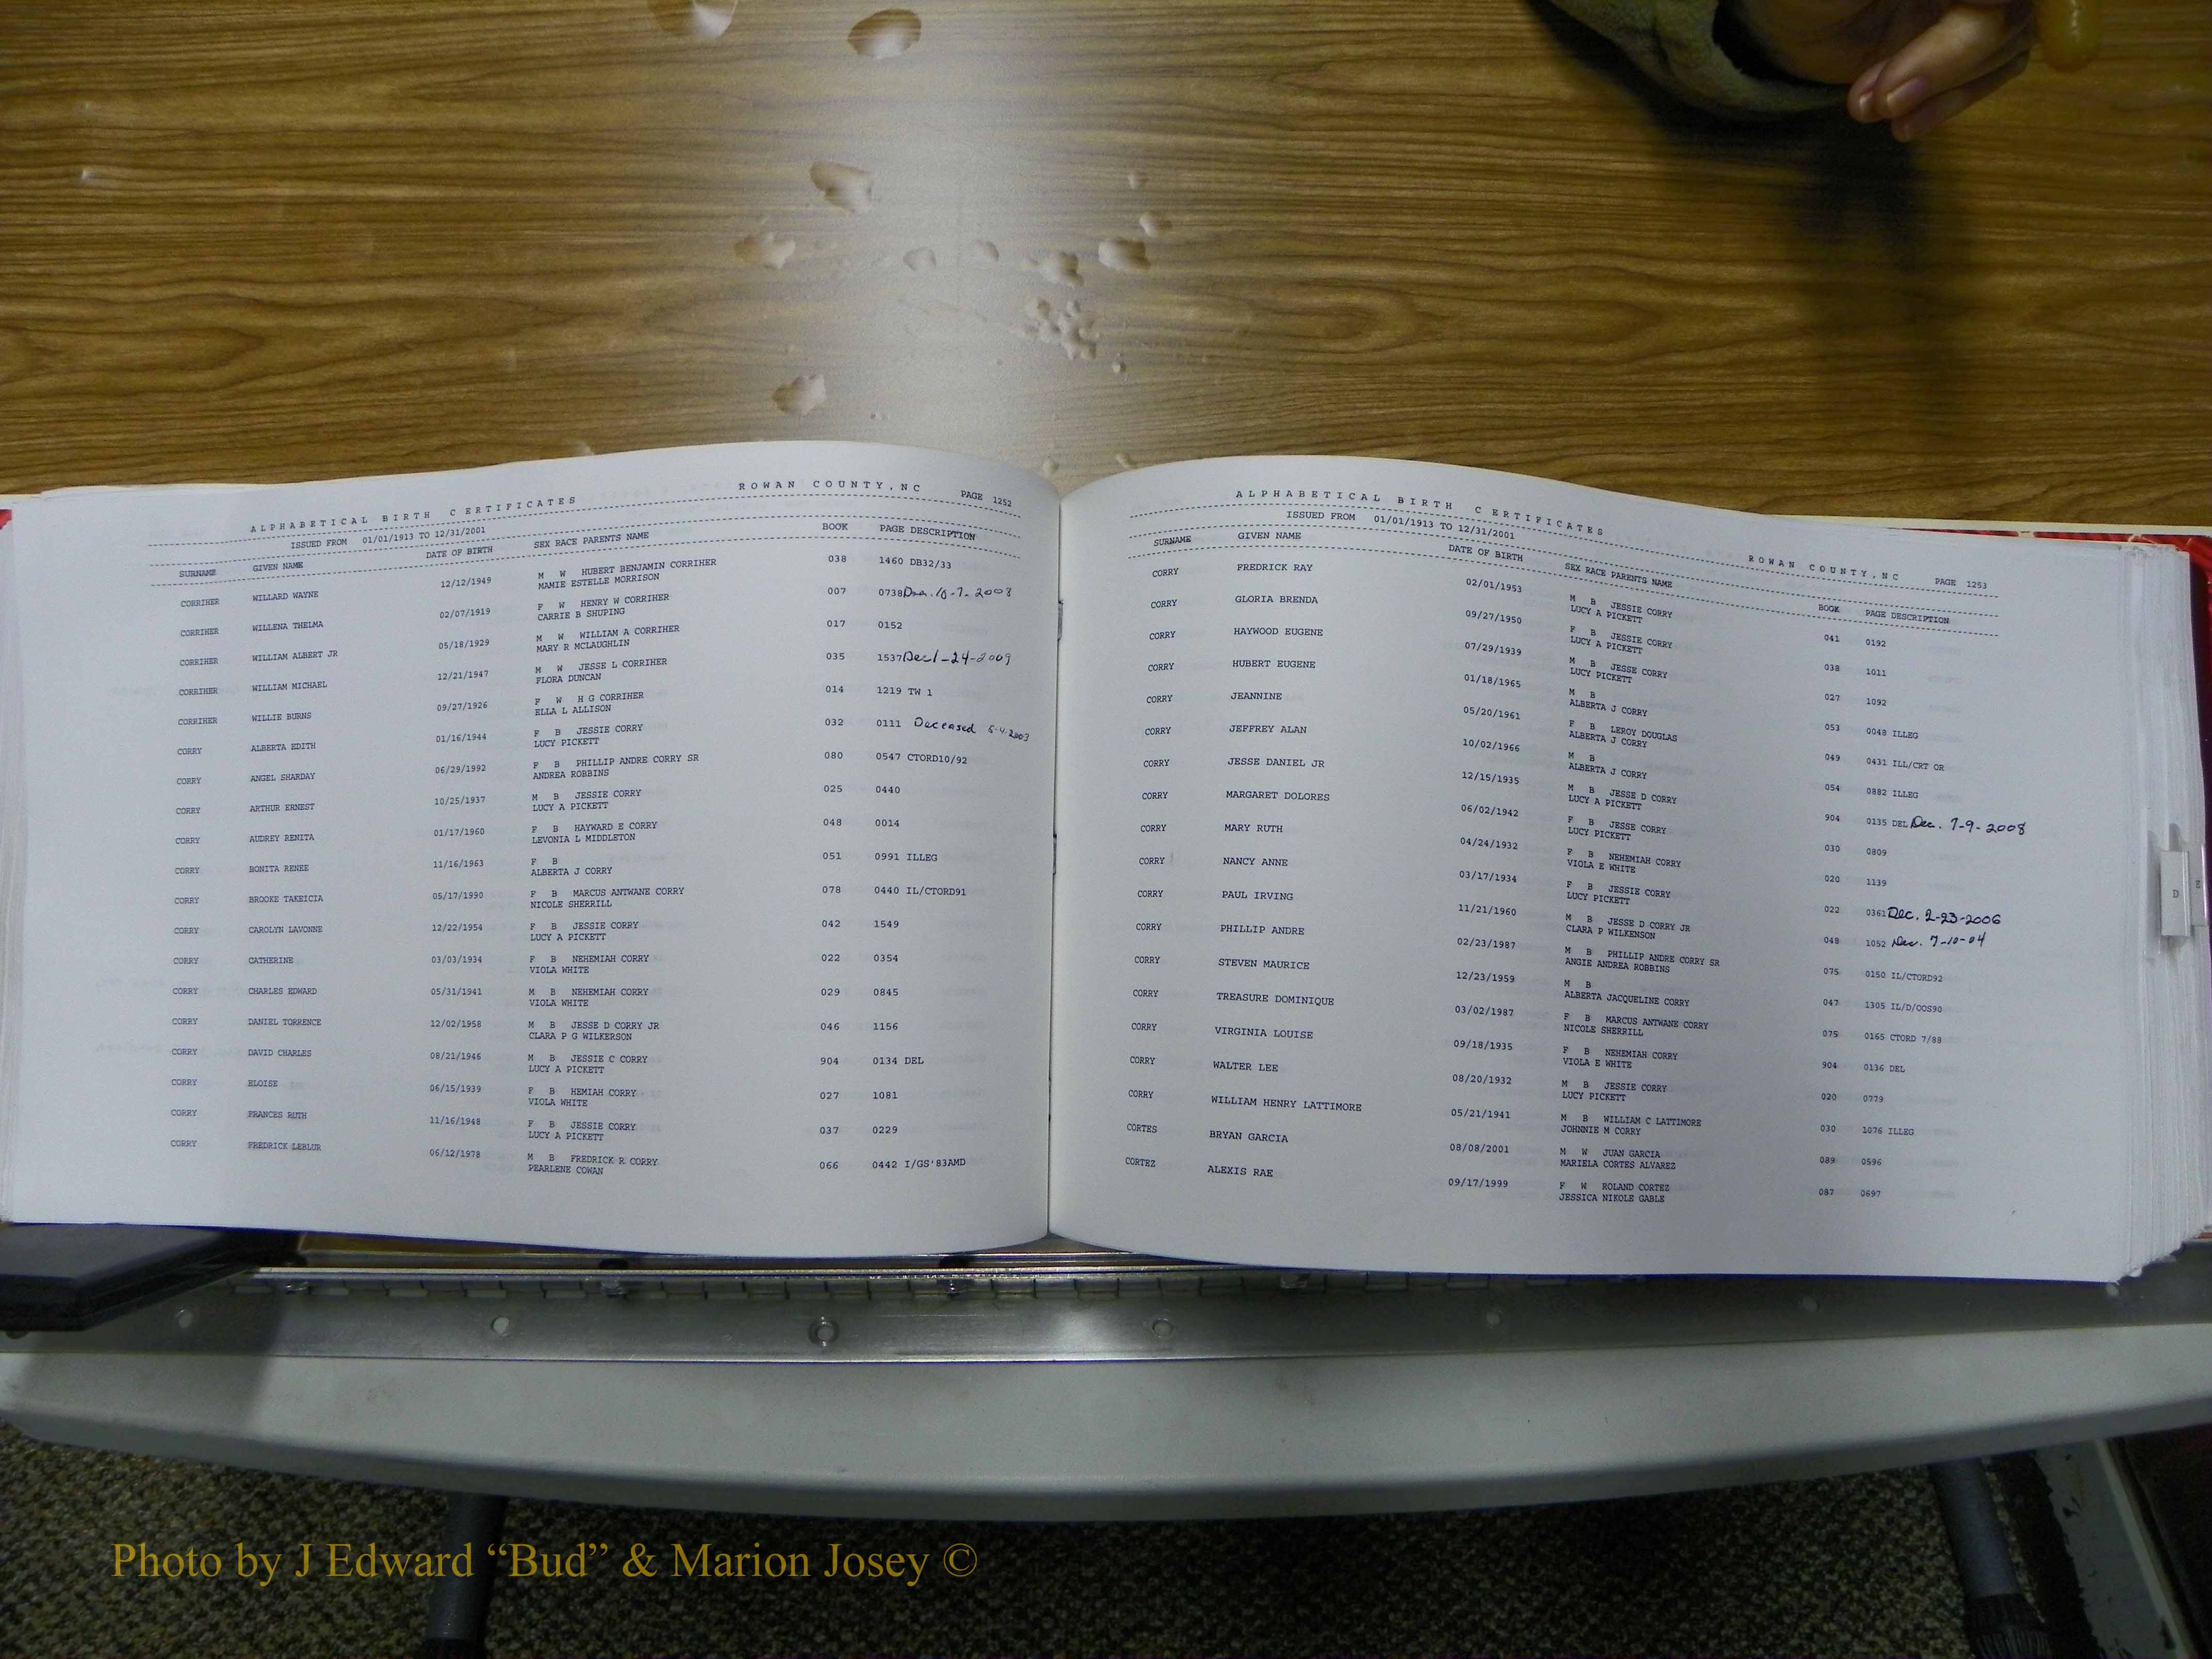 ALPHABETICAL BIRTH CERTIFICATES ROWAN COUNTY, NC PAGE 1252
ISSUED FROM 01/01/1913 TO 12/31/2001
SURNAME GIVEN NAME DATE OF BIRTH SEX RACE PARENTS NAME BOOK PAGE DESCRIPTION
CORRIHER WILLARD WAYNE 12/12/1949 M W HUBERT BENJAMIN CORRIHER 038 1460 DB32/33
MAMIE ESTELLE MORRISON
CORRIHER WILLENA THELMA 02/07/1919 F W HENRY W CORRIHER 007 0738
CARRIE B SHUPING
CORRIHER WILLIAM ALBERT JR 05/18/1929 M W WILLIAM A CORRIHER 017 0152
MARY R MCLAUGHLIN
CORRIHER WILLIAM MICHAEL 12/21/1947 M W JESSE L CORRIHER 035 1537 Dec 1-24-2009
FLORA DUNCAN
CORRIHER WILLIE BURNS 09/27/1926 F W H G CORRIHER 014 1219 TW 1
ELLA L ALLISON
CORRY ALBERTA EDITH 01/16/1944 F B JESSIE CORRY 032 0111 Deceased 5-4-2003
LUCY PICKETT
CORRY ANGEL SHARDAY 06/29/1992 F B PHILLIP ANDRE CORRY SR 080 0547 CTORD10/92
ANDREA ROBBINS
CORRY ARTHUR ERNEST 10/25/1937 M B JESSIE CORRY 025 0440
LUCY A PICKETT
CORRY AUDREY RENITA 01/17/1960 F B HAYWARD E CORRY 048 0014
LEVONIA L MIDDLETON
CORRY BONITA RENEE 11/16/1963 F B 051 0991 ILLEG
ALBERTA J CORRY
CORRY BROOKE TAKEICIA 05/17/1990 F B MARCUS ANTWANE CORRY 078 0440 IL/CTORD91
NICOLE SHERRILL
CORRY CAROLYN LAVONNE 12/22/1954 F B JESSIE CORRY 042 1549
LUCY A PICKETT
CORRY CATHERINE 03/03/1934 F B NEHEMIAH CORRY 022 0354
VIOLA WHITE
CORRY CHARLES EDWARD 05/31/1941 M B NEHEMIAH CORRY 029 0845
VIOLA WHITE
CORRY DANIEL TORRENCE 12/02/1958 M B JESSE D CORRY JR 046 1156
CLARA P G WILKERSON
CORRY DAVID CHARLES 08/21/1946 M B JESSIE C CORRY 904 0134 DEL
LUCY A PICKETT
CORRY ELOISE 06/15/1939 F B HEMIAH CORRY 027 1081
VIOLA WHITE
CORRY FRANCES RUTH 11/16/1948 F B JESSIE CORRY 037 0229
LUCY A PICKETT
CORRY FREDRICK LEBLUR 06/12/1978 M B FREDRICK R CORRY 066 0442 I/GS'83AMD
PEARLENE COWAN
ALPHABETICAL BIRTH CERTIFICATES ROWAN COUNTY, NC PAGE 1253
ISSUED FROM 01/01/1913 TO 12/31/2001
SURNAME GIVEN NAME DATE OF BIRTH SEX RACE PARENTS NAME BOOK PAGE DESCRIPTION
CORRY FREDRICK RAY 02/01/1953 M B JESSIE CORRY 041 0192
LUCY A PICKETT
CORRY GLORIA BRENDA 09/27/1950 F B JESSIE CORRY 038 1011
LUCY A PICKETT
CORRY HAYWOOD EUGENE 07/29/1939 M B JESSE CORRY 027 1092
LUCY PICKETT
CORRY HUBERT EUGENE 01/18/1965 M B 053 0048 ILLEG
ALBERTA J CORRY
CORRY JEANNINE 05/20/1961 F B LEROY DOUGLAS 049 0431 ILL/CRT OR
ALBERTA J CORRY
CORRY JEFFREY ALAN 10/02/1966 M B 054 0882 ILLEG
ALBERTA J CORRY
CORRY JESSE DANIEL JR 12/15/1935 M B JESSE D CORRY 904 0135 DEL Dec. 7-9-2008
LUCY A PICKETT
CORRY MARGARET DOLORES 06/02/1942 F B JESSE CORRY 030 0809
LUCY PICKETT
CORRY MARY RUTH 04/24/1932 F B NEHEMIAH CORRY 020 1139
VIOLA E WHITE
CORRY NANCY ANNE 03/17/1934 F B JESSIE CORRY 022 0361 Dec. 2-23-2006
LUCY PICKETT
CORRY PAUL IRVING 11/21/1960 M B JESSE D CORRY JR 048 1052 Dec. 7-10-04
CLARA P WILKENSON
CORRY PHILLIP ANDRE 02/23/1987 M B PHILLIP ANDRE CORRY SR 075 0150 IL/CTORD92
ANGIE ANDREA ROBBINS
CORRY STEVEN MAURICE 12/23/1959 M B 047 1305 IL/D/OOS90
ALBERTA JACQUELINE CORRY
CORRY TREASURE DOMINIQUE 03/02/1987 F B MARCUS ANTWANE CORRY 075 0165 CTORD 7/88
NICOLE SHERRILL
CORRY VIRGINIA LOUISE 09/18/1935 F B NEHEMIAH CORRY 904 0136 DEL
VIOLA E WHITE
CORRY WALTER LEE 08/20/1932 M B JESSIE CORRY 020 0779
LUCY PICKETT
CORRY WILLIAM HENRY LATTIMORE 05/21/1941 M B WILLIAM C LATTIMORE 030 1076 ILLEG
JOHNNIE M CORRY
CORTES BRYAN GARCIA 08/08/2001 M W JUAN GARCIA 089 0596
MARIELA CORTES ALVAREZ
CORTEZ ALEXIS RAE 09/17/1999 F W ROLAND CORTEZ 087 0697
JESSICA NIKOLE GABLE
D
E
Photo by J Edward “Bud” & Marion Josey ©